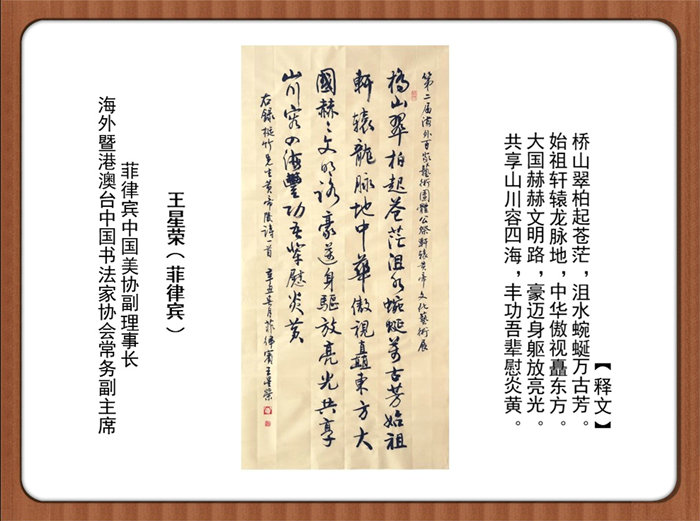 【释文】
桥山翠柏起苍茫，沮水蜿蜒万古芳。
始祖轩辕龙脉地，中华傲视矗东方。
大国赫赫文明路，豪迈身躯放亮光。
共享山川容四海，丰功吾辈慰炎黄。
第二届海外百家藝術團體公祭軒轅黄帝文化藝術展
橋山翠柏起苍茫沮水蜿蜒万古芳始祖
軒辕龍脉地中華傲視矗東方大
國赫赫文明路豪迈身躯放亮光共享
山川容四海豐功吾輩慰炎黄
右録挺竹先生黄帝陵詩一首 辛丑年月菲律賓王星榮
王星荣（菲律宾）
菲律宾中国美协副理事长
海外暨港澳台中国书法家协会常务副主席